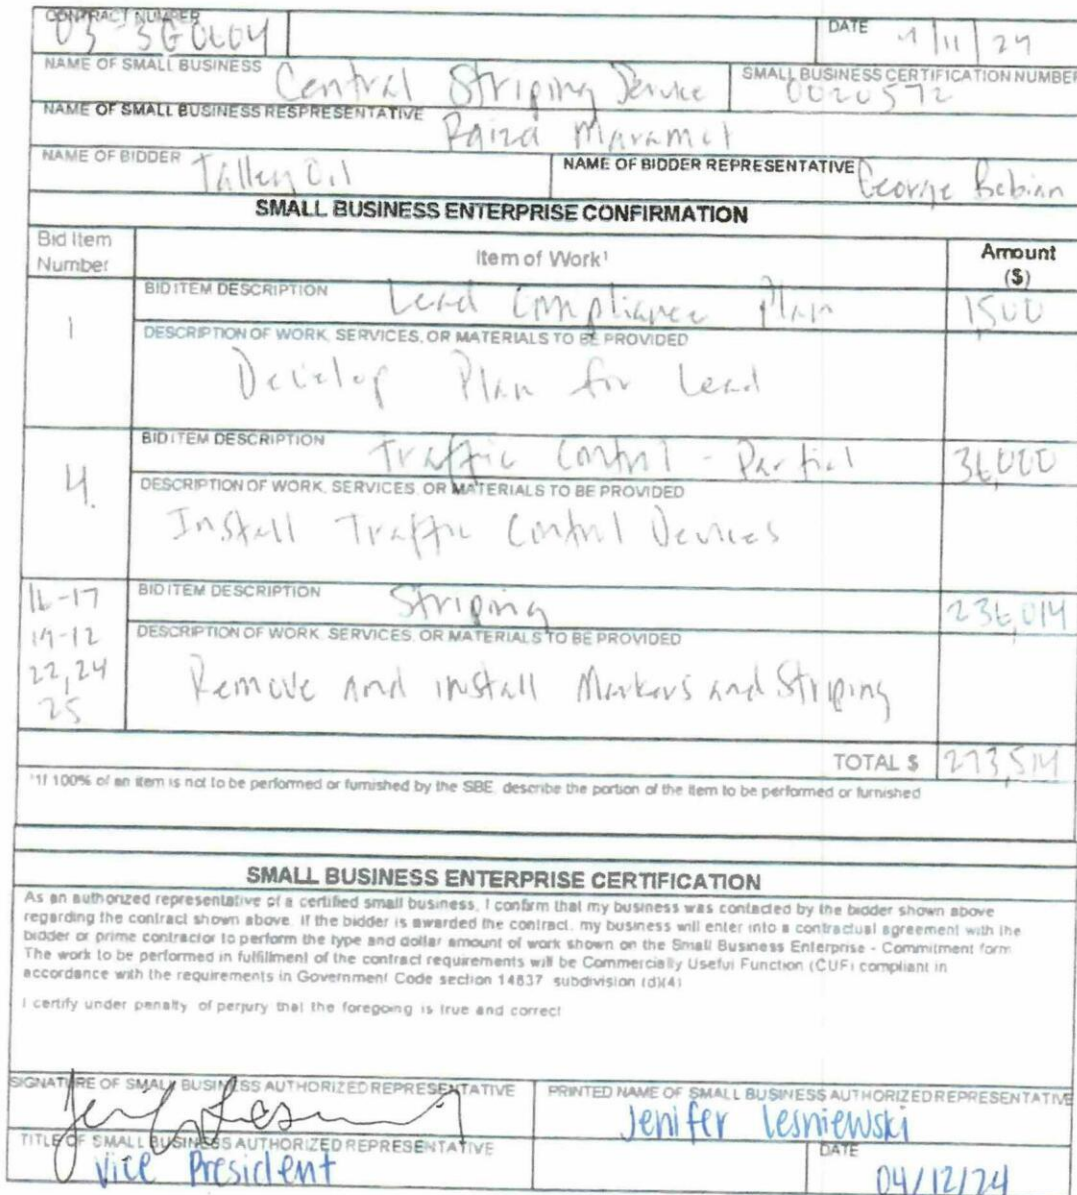 CONTRACT NUMBER
DATE
NAME OF SMALL BUSINESS Central Striping Service
SMALL BUSINESS CERTIFICATION NUMBER
0020572
NAME OF SMALL BUSINESS RESPRESENTATIVE
NAME OF BIDDER
NAME OF BIDDER REPRESENTATIVE George
SMALL BUSINESS ENTERPRISE CONFIRMATION
Bid Item Number
Item of Work¹
Amount ($)
BID ITEM DESCRIPTION Lead Compliance Plan 1,500
1
DESCRIPTION OF WORK, SERVICES, OR MATERIALS TO BE PROVIDED
Develop Plan for Lead
BID ITEM DESCRIPTION Traffic Control - Partial 36,000
4.
DESCRIPTION OF WORK, SERVICES, OR MATERIALS TO BE PROVIDED
Install Traffic Control Devices
16-17
BID ITEM DESCRIPTION Striping 236,014
19-12
22,24
25
DESCRIPTION OF WORK, SERVICES, OR MATERIALS TO BE PROVIDED
Remove and install Markers and Striping
TOTAL $ 273,514
¹If 100% of an item is not to be performed or furnished by the SBE, describe the portion of the item to be performed or furnished
SMALL BUSINESS ENTERPRISE CERTIFICATION
As an authorized representative of a certified small business, I confirm that my business was contacted by the bidder shown above
regarding the contract shown above. If the bidder is awarded the contract, my business will enter into a contractual agreement with the
bidder or prime contractor to perform the type and dollar amount of work shown on the Small Business Enterprise - Commitment form
The work to be performed in fulfillment of the contract requirements will be Commercially Useful Function (CUF) compliant in
accordance with the requirements in Government Code section 14837 subdivision (d)(4)
I certify under penalty of perjury that the foregoing is true and correct
SIGNATURE OF SMALL BUSINESS AUTHORIZED REPRESENTATIVE
PRINTED NAME OF SMALL BUSINESS AUTHORIZED REPRESENTATIVE
Jenifer Lesniewski
TITLE OF SMALL BUSINESS AUTHORIZED REPRESENTATIVE
Vice President
DATE
04/12/24